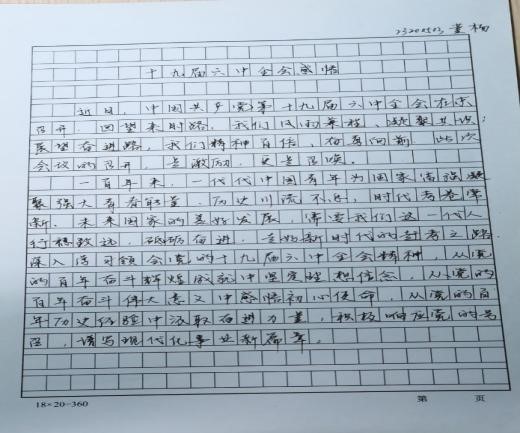 董杨
十九届六中全会感悟
近日,中国共产党第十九届六中全会在京
召开。回望来时路,我们成功,凝聚共识;
展望奋进路,我们精神百倍,奋勇向前。此次
会议的召开,是激励,更是召唤。
一百年来,一代代中国青年为国家富强凝
聚强大青春能量。历史川流不息,时代考卷常
新。未来国家的美好发展,需要我们这一代人
行稳致远,砥砺奋进,走好新时代的赶考之路。
深入学习领会党的十九届六中全会精神,从党
的百年奋斗辉煌成就中坚定理想信念,从党的
百年奋斗伟大意义中感悟初心使命,从党的百
年历史经验中汲取奋进力量,积极响应党的号
召,谱写现代化事业新篇章。
18×20=360 第 页